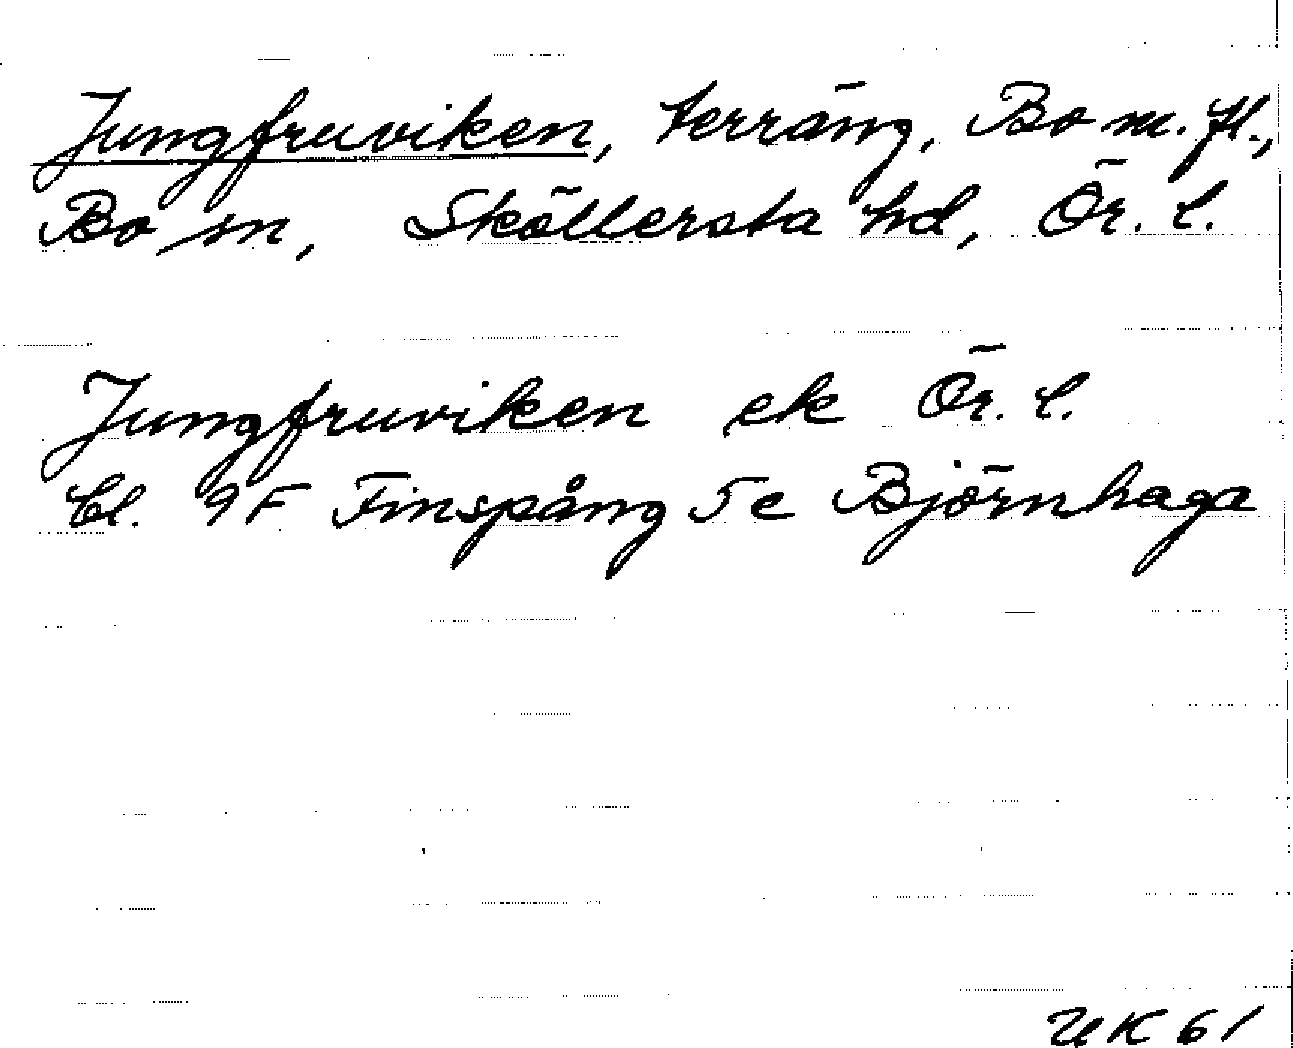 Jungfruviken, terräng, Bo m. fl.,
Bo sn, Sköllersta hd, Ör. l.
Jungfruviken ek Ör. l.
bl. 9F Finspång 5e Björnhaga
UK 61